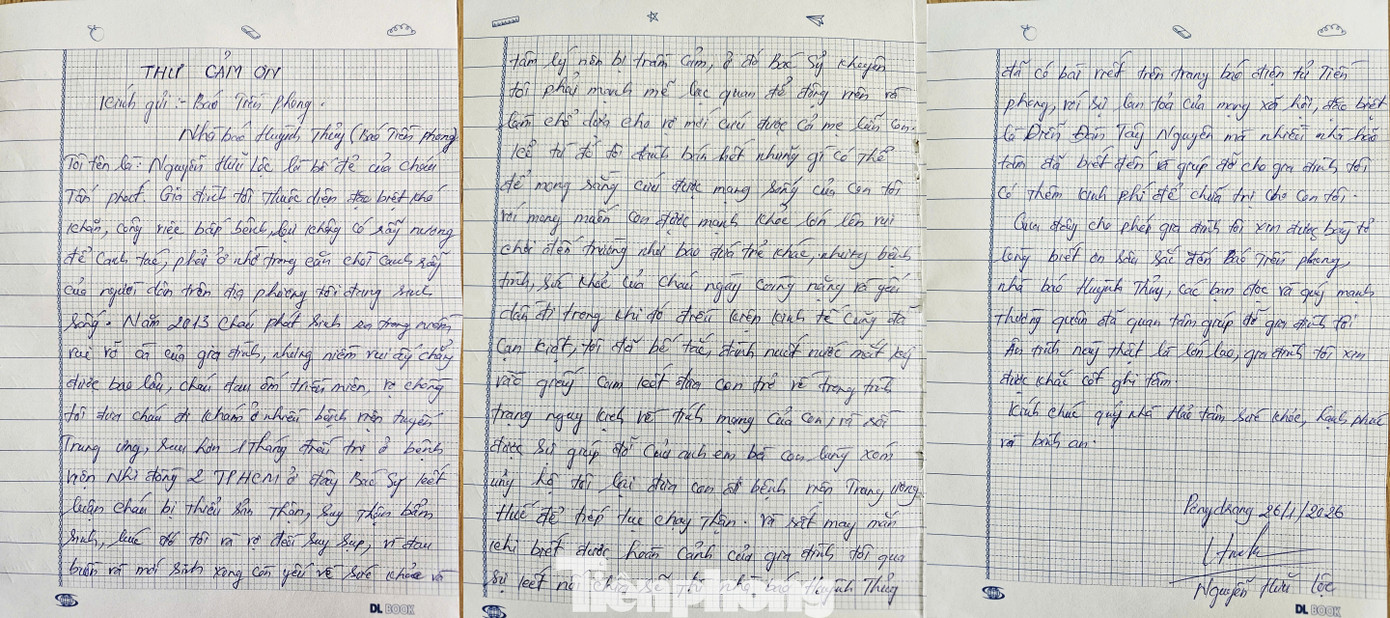 THƯ CẢM ƠN
Kính gửi :- Báo Tiền phong.
Nhà báo Huỳnh Thủy (Báo Tiền phong)
Tôi tên là: Nguyễn Hữu Lộc là bố đẻ của cháu
Tấn phát. Gia đình tôi thuộc diện đặc biệt khó
khăn, công việc bấp bênh, lại không có rẫy nương
để canh tác, phải ở nhờ trong căn chòi canh rẫy
của người dân trên địa phương tôi đang sinh
sống. Năm 2013 cháu phát sinh ra trong niềm
vui vỡ oà của gia đình, nhưng niềm vui ấy chẳng
được bao lâu, cháu đau ốm triền miên, vợ chồng
tôi đưa cháu đi khám ở nhiều bệnh viện tuyến
Trung ương, sau hơn 1 tháng điều trị ở bệnh
viện Nhi đồng 2 TPHCM ở đây Bác Sỹ kết
luận cháu bị thiểu sản thận, suy thận bẩm
sinh, lúc đó tôi và vợ đều suy sụp, vì đau
buồn và mới sinh xong còn yếu về sức khỏe và
tâm lý nên bị trầm cảm, ở đó Bác Sỹ khuyên
tôi phải mạnh mẽ lạc quan để động viên và
làm chổ dựa cho vợ mới cứu được cả mẹ lẫn con.
kể từ đó tôi đành bán hết những gì có thể
để mong rằng cứu được mạng sống của con tôi
với mong muốn con được mạnh khỏe lớn lên vui
chơi đến trường như bao đứa trẻ khác, nhưng bệnh
tình, sức khỏe của cháu ngày càng nặng và yếu
dần đi trong khi đó điều kiện kinh tế cũng đã
cạn kiệt, tôi đã bế tắc, đành nuốt nước mắt ký
vào giấy cam kết đưa con trẻ về trong tình
trạng nguy kịch về tính mạng của con, và rồi
được sự giúp đỡ của anh em bà con làng xóm
ủng hộ tôi lại đưa con đi bệnh viện Trung ương
Huế để tiếp tục chạy thận. và rất may mắn
khi biết được hoàn cảnh của gia đình tôi qua
sự kết nối chia sẽ thì nhà báo Huỳnh Thủy
đã có bài viết trên trang báo điện tử Tiền
phong, với sự lan toả của mạng xã hội, đặc biệt
là Diễn Đàn Tây Nguyên mà nhiều nhà hảo
tâm đã biết đến và giúp đỡ cho gia đình tôi
có thêm kinh phí để chữa trị cho con tôi.
Qua đây cho phép gia đình tôi xin được bày tỏ
lòng biết ơn sâu sắc đến Báo Tiền phong,
nhà báo Huỳnh Thủy, các bạn đọc và quý mạnh
thường quân đã quan tâm giúp đỡ gia đình tôi
Ân tình này thật là lớn lao, gia đình tôi xin
được khắc cốt ghi tâm.
Kính chúc quý nhà Hảo tâm sức khỏe, hạnh phúc
và bình an.
Pengdrang 26/1/2026
Nguyễn Hữu Lộc
DL BOOK
DL BOOK
Tiền phong